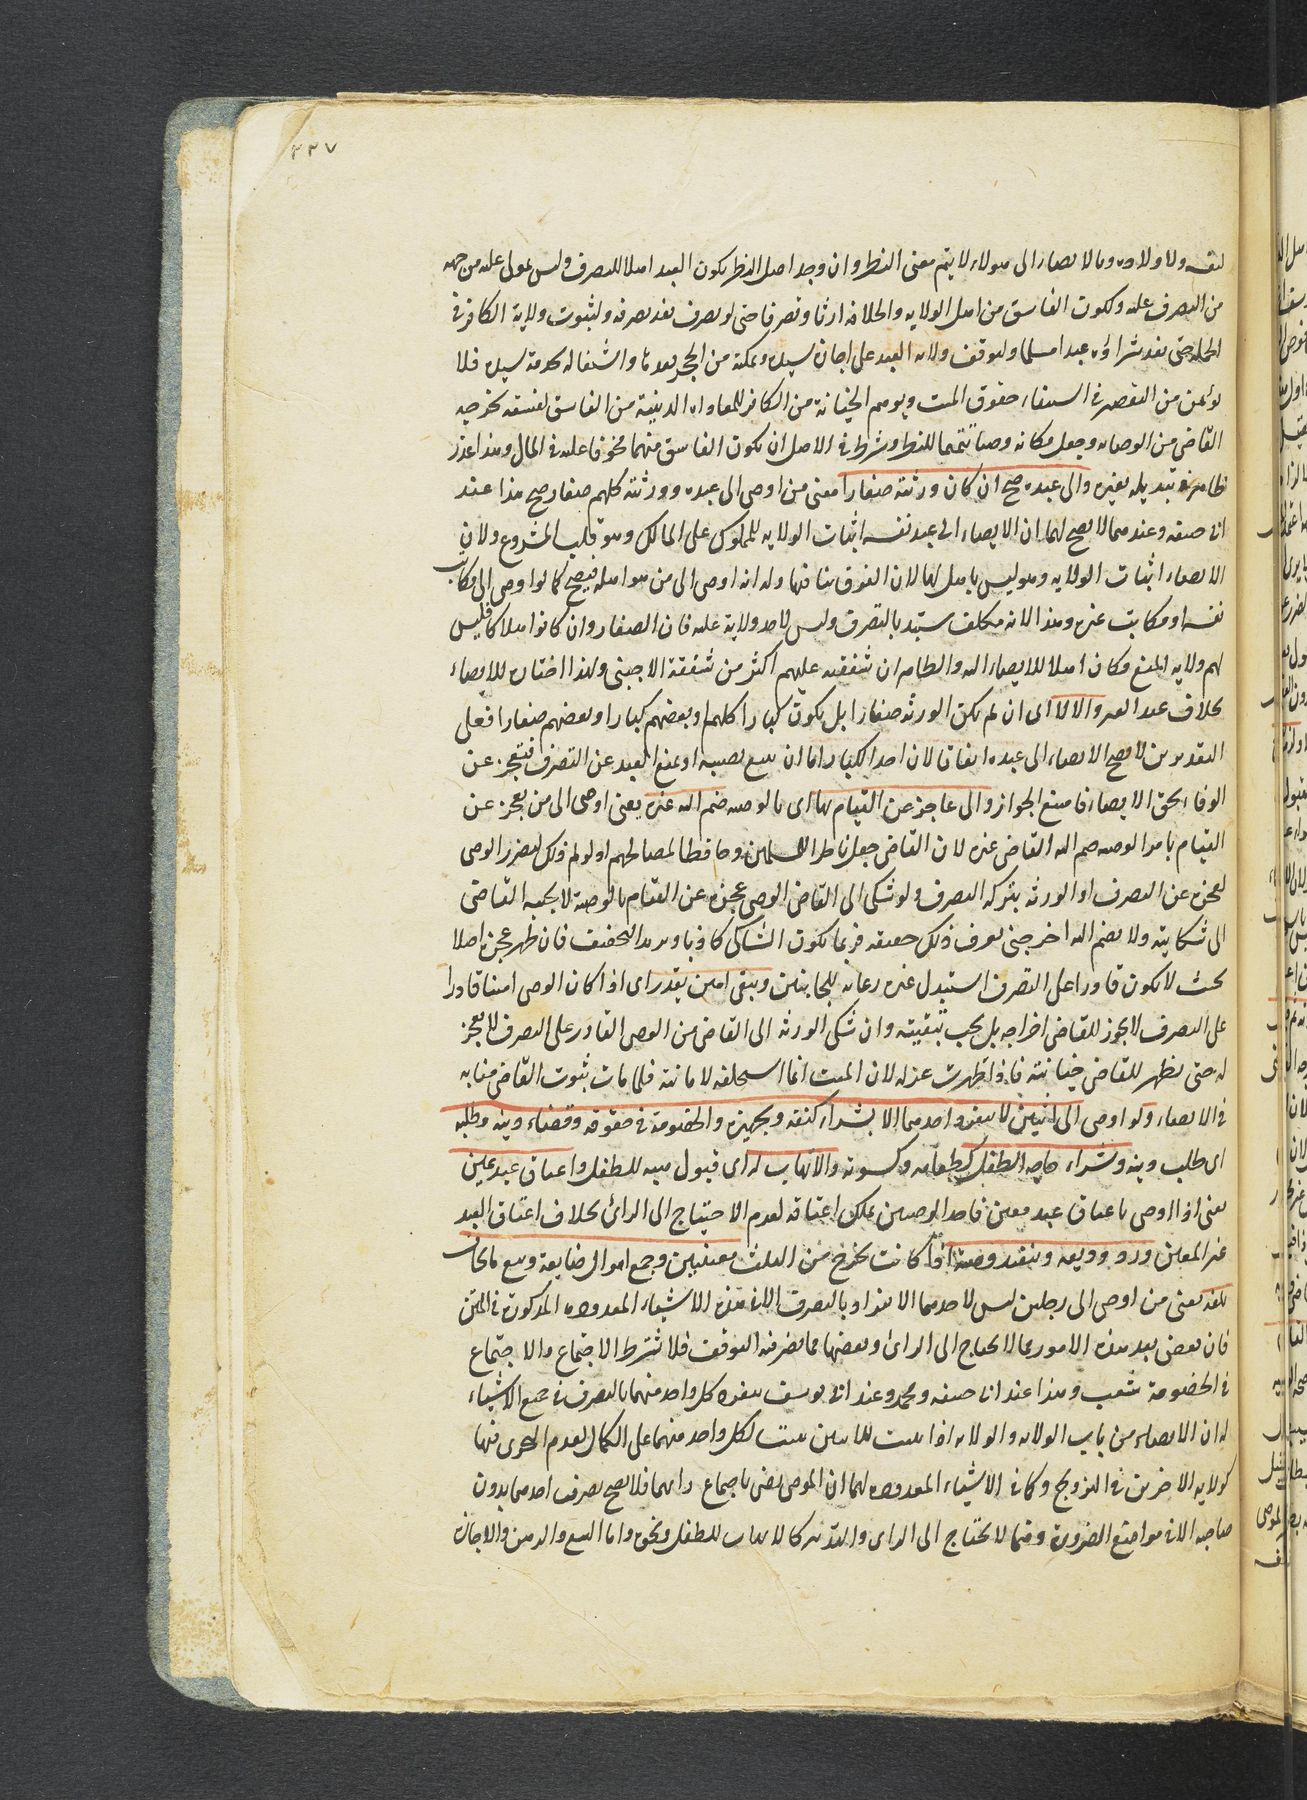 ٣٣٧
لنفسه ولاولاده وبالايصاء الى مولاه لا يتم معنى النظر وان وجد اصل النظر بكون العبد اهلا للتصرف وليس بمولى عليه من جهة
من التصرف عليه ولكون الفاسق من اهل الولاية والخلافة ارثا وتصرفا حتى لو تصرف نفذ تصرفه ولثبوت ولاية الكافر في
الجملة حتى نفذ شراؤه عبدا مسلما ولتوقف ولاية العبد على اجازة سيده وتمكنه من الحجر بعدها واشتغاله بخدمة سيده فلا
يؤمن من التقصير في استيفاء حقوق الميت ويوهم الخيانة من الكافر للمعاداة الدينية من الفاسق لفسقه يخرجه
القاضى من الوصاية وجعل مكانه وصيا تتميما للنظر وشرط في الاصل ان يكون الفاسق منهما مخوفا عليه في المال وهذا عذر
ظاهر في تبديله بغيره والى عبده صح ان كان ورثته صغارا معنى من اوصى الى عبده وورثته كلهم صغار صح هذا عند
ابى حنيفة وعندهما لا يصح لهما ان الايصاء الى عبد نفسه اثبات الولاية للمملوك على المالك وهو قلب المشروع ولان
الايصاء اثبات الولاية وهو ليس باهل لها لان الفرق ينافيها وله انه اوصى الى من هو اهله فيصح كما لو اوصى الى مكاتب
نفسه او مكاتب غيره وهذا لانه مكلف مستبد بالتصرف وليس لاحد ولاية عليه فان الصغار وان كانوا ملاكا فليس
لهم ولاية المنع فكان اهلا للايصاء اليه والظاهر ان شفقته عليهم اكثر من شفقة الاجنبى ولهذا اختاره للايصاء
بخلاف عبد الغير والا لا اى ان لم يكن الورثة صغارا بل يكون كبارا كلهم او بعضهم كبارا وبعضهم صغارا فعلى
التقديرين لا يصح الايصاء الى عبده اتفاقا لان احد الكبار اما ان يبيع نصيبه او يمنع العبد عن التصرف فيعجز عن
الوفاء بحق الايصاء فامتنع الجواز والى عاجز عن القيام بها اى بالوصية ضم اليه غيره يعنى اوصى الى من يعجز عن
القيام بامر الوصية ضم اليه القاضى غيره لان القاضى جعل ناظرا للمسلمين وحافظا لمصالحهم ولو لم ذلك لتضرر الوصى
لعجزه عن التصرف او الورثة بتركه التصرف ولو شكى الى القاضى الوصى عجزه عن القيام بالوصية لا يجيبه القاضى
الى شكايته ولا يضم اليه اخر حتى يعرف ذلك حقيقة فربما يكون الشاكى كاذبا ويريد التخفيف فان ظهر عجزه اصلا
بحيث لا يكون قادرا على التصرف استبدل غيره رعاية للجانبين ويبقى امين يقدر اى اذا كان الوصى امينا قادرا
على التصرف لا يجوز للقاضى اخراجه بل يجب تبقيته وان شكى الورثة الى القاضى من الوصى القادر على التصرف لا يعجز
له حتى يظهر للقاضى خيانته فاذا ظهرت عزله لان الميت انما استخلفه لامانته فلما مات ثبوت القاضى منابه
في الايصاء ولو اوصى الى اثنين لا ينفرد احدهما الا بشراء كفنه وتجهيزه والخصومة في حقوقه وقضاء دينه وطلبه
اى طلب دينه وشراء حاجة الطفل كطعامه وكسوته والاتهاب له اى قبول هبة للطفل واعتاق عبد عين
يعنى اذا اوصى باعتاق عبد معين فاحد الوصيين يملك اعتاقه لعدم الاحتياج الى الرأى بخلاف اعتاق العبد
غير المعين ورد وديعة وتنفيذ وصية اذا كانت تخرج من الثلث معينين وجمع اموال ضايعة وبيع ما يخاف
تلفه يعنى من اوصى الى رجلين ليس لاحدهما الانفراد بالتصرف الا في هذه الاشياء المعدودة المذكورة في المتن
فان بعض بعد هذه الامور مما لا يحتاج الى الرأى وبعضها مما يضر فيه التوقف فلا يشترط الاجتماع والاجتماع
في الخصومة شغب وهذا عند ابى حنيفة ومحمد وعند ابى يوسف ينفرد كل واحد منهما بالتصرف في جميع الاشياء
له ان الايصاء من باب الولاية والولاية اذا ثبتت للاثنين يثبت لكل واحد منهما على الكمال لعدم التجزى فيها
كولاية الاخوين في التزويج وكما في الاشياء المعدودة لهما ان الموصى رضى باجماع رايهما فلا يصح تصرف احدهما بدون
صاحبه الا في مواضع الضرورة وفيما لا يحتاج الى الراى والتدبير كالاتهاب للطفل ونحوه واما البيع والرهن والاجازة